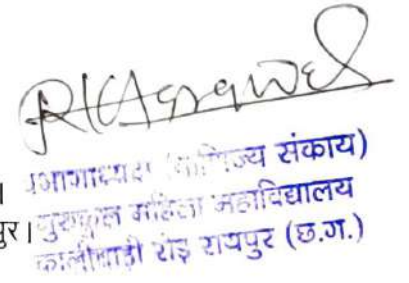 RKAgrawal
विभागाध्यक्ष (वाणिज्य संकाय)
। गुरुकुल महिला महाविद्यालय
पुर। कालीबाड़ी रोड़ रायपुर (छ.ग.)